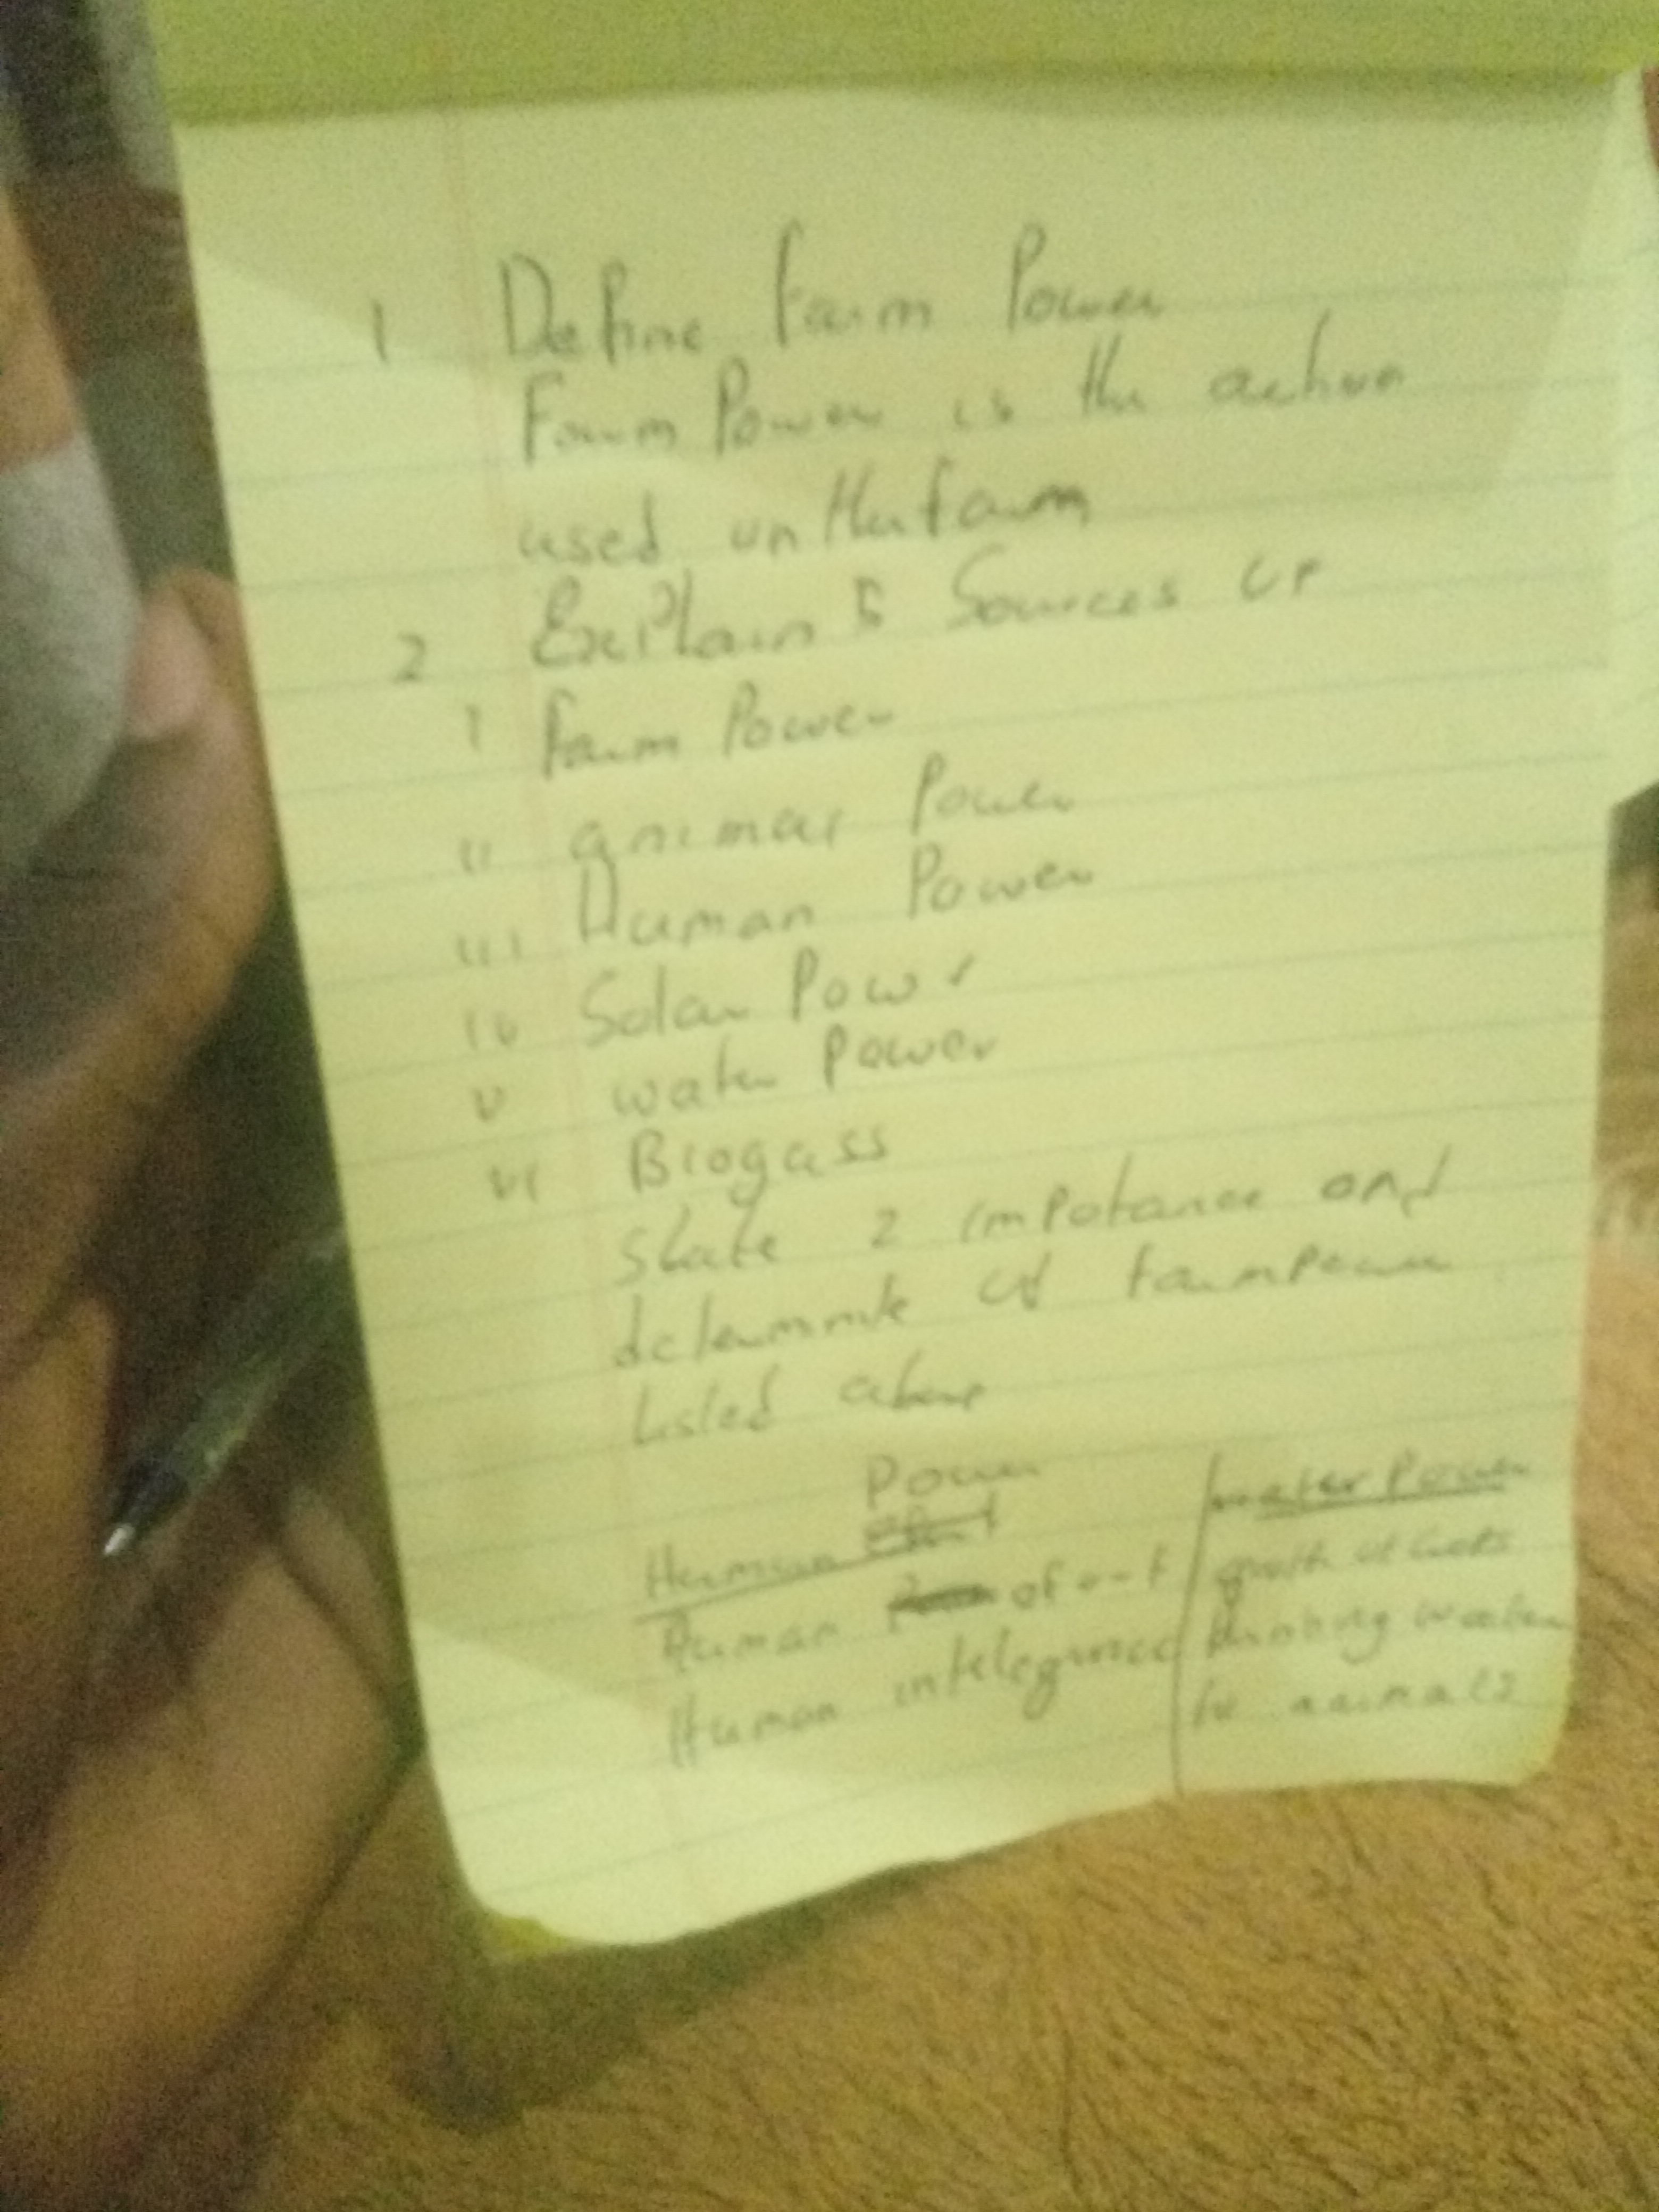 1 Define farm Power
Farm Power is the action
used on the farm
2 Explain 5 Sources of
i Farm Power
ii animal Power
iii Human Power
iv Solar Power
v water Power
vi Biogass
State 2 impotance and
of farmpower
Listed above
Power
Human water Power
Human growth of
Human water
to animals